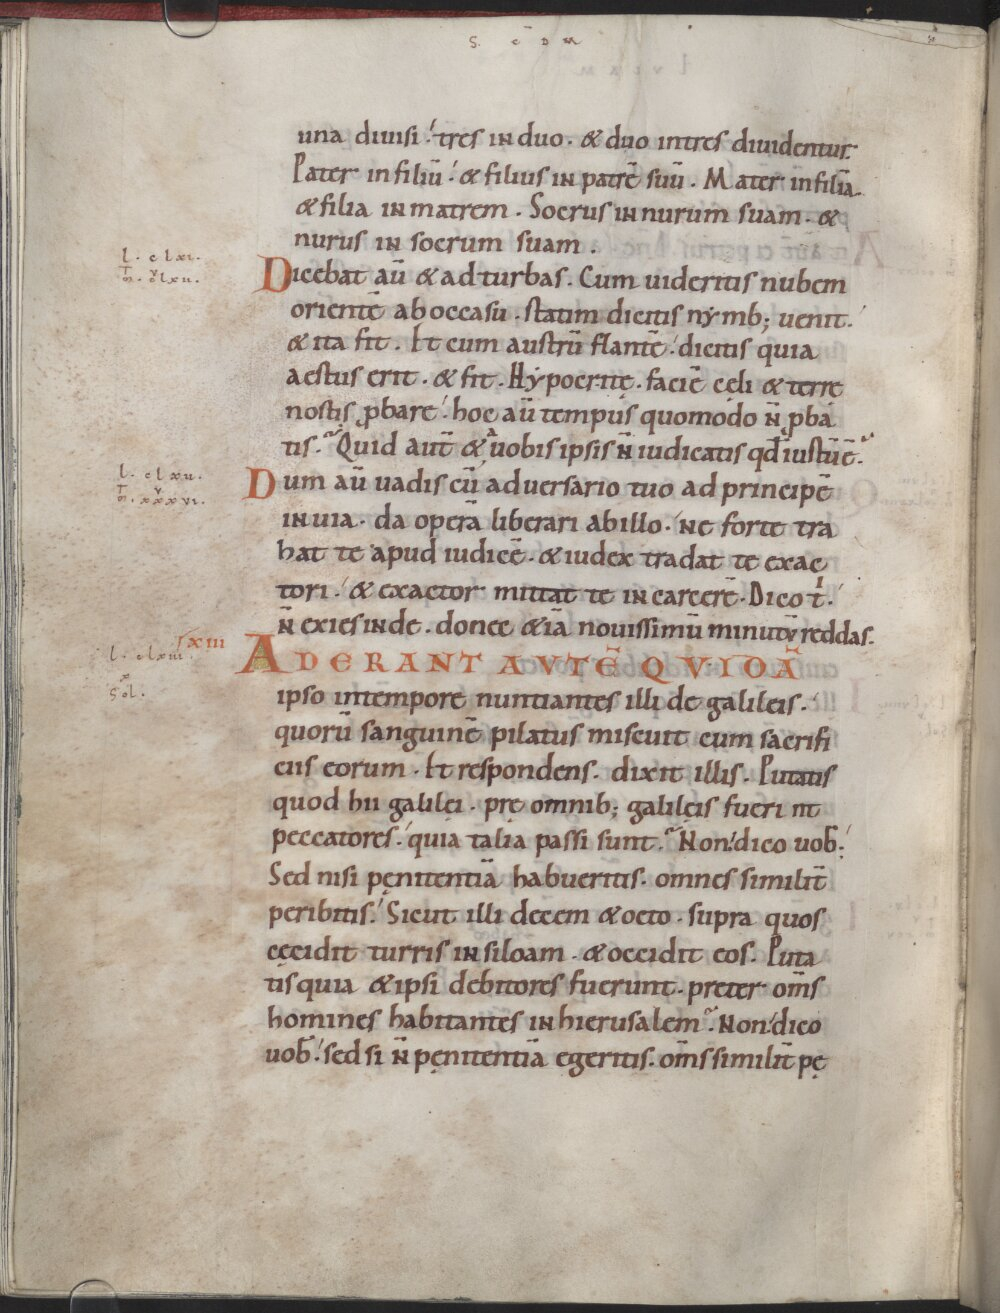 S. C D M
una diuisi. tres in duo. & duo intres diuidentur.
Pater in filiū. & filius in patrē suū. Mater in filiā.
& filia in matrem. Socrus in nurum suam. &
nurus in socrum suam.
l. clxi.
m̄. clxu.
Dicebat aū & ad turbas. Cum uideritis nubem
orientē ab occasu. statim dicitis nẏmb; uenit.
& ita fit. Et cum austrū flantē. dicitis quia
aestus erit. & fit. Hẏpocritę. faciē cęli & terre
nostis ꝓbare. hoc aū tempus quomodo n̄ ꝓba
tis. Quid aut̄ & a uobis ipsis n̄ iudicatis qđ iustū ē.
l. clxu.
m̄. xxxui.
Dum aū uadis cū aduersario tuo ad principē
in uia. da operā liberari ab illo. ne forte tra
hat te apud iudicē. & iudex tradat te exac
tori. & exactor mittat te in carcerē. Dico t̄.
n̄ exies inde. donec &iā nouissimū minutū reddas.
xiii
l. clxiii.
Sol.
ADERANT AVTĒ QVIDĀ
ipso in tempore nuntiantes illi de galileis.
quorū sanguinē pilatus miscuit cum sacrifi
ciis eorum. Et respondens. dixit illis. Putatis
quod hii galilęi. prę omnib; galilęis fueri nt
peccatores. quia talia passi sunt. Non dico uob̄.
Sed nisi pęnitentiā habueritis. omnes similit̄
peribitis. Sicut illi decem & octo. supra quos
cęcidit turris in siloam. & occidit eos. Puta
tis quia & ipsi debitores fuerunt. preter om̄s
homines habitantes in hierusalem. Non dico
uob̄. sed si n̄ pęnitentiā egeritis. om̄s similit̄ pę